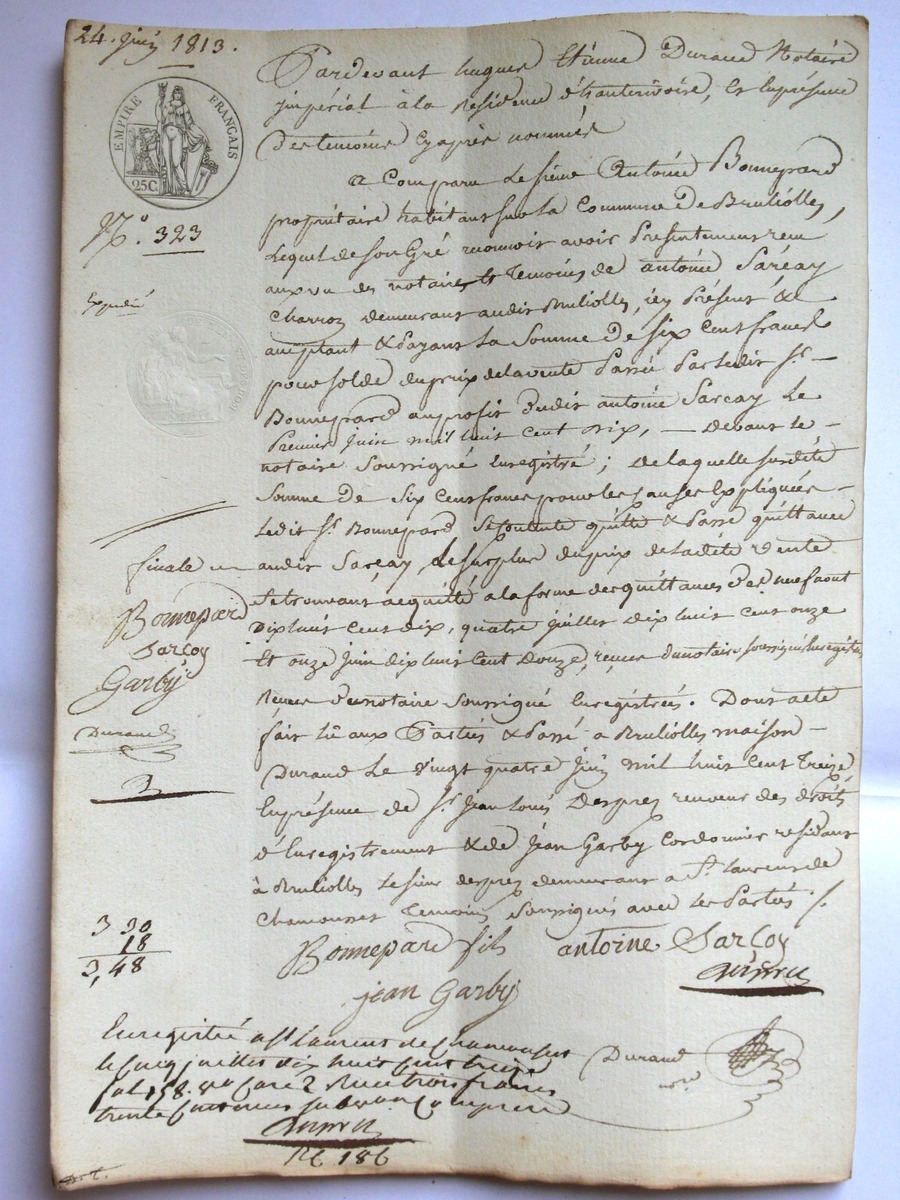 24. juin 1813.
EMPIRE FRANÇAIS
25C.
N.º 323
Expedié
Pardevant hugues Etienne Durand Notaire
imperial à la Residence d'hauterivoire, Et En présence
Des temoins Cy après nommés
a Comparu Le sieur Antoine Bonnepard
propriétaire habitant sur la Commune De Bruliolles,
Lequel de son Gré reconnoit avoir Présentement reçu
aux vu des notaire & Temoins de antoine Sarçay
Charron demeurant audit Brulliolles, icy Présent &
acceptant & Payant La Somme De Six Cent francs
pour solde du prix de la vente Passée Par Ledit Sr. —
Bonnepard au profit Dudit antoine Sarçay Le
Premier juin mil huit Cent dix, — Devant Le —
notaire Soussigné Enregistré ; De laquelle susdite
Somme De Six Cent francs pour les Causes Expliquées —
Ledit Sr. Bonnepard Se Contente quitte & Passe quittance
finale au
audit Sarçay, Le surplus du prix de ladite Vente
se trouvant acquitté a la forme des quittances Des neuf aout
Dix huit Cent dix, quatre juillet dix huit Cent onze
Et onze juin dix huit Cent Douze, reçues du notaire soussigné Enregistrées
Reçues du notaire Soussigné Enregistrées. Dont acte
fait lû aux Parties & Passé a Brulliolles maison —
Durand Le Vingt quatre juin mil huit Cent Treize
En présence de Sr. Jean Louis Desprez receveur des droits
d'Enregistrement & de Jean Garby Cordonnier residant
à Brulliolles Le sieur desprez demeurant a St. Laurent de
Chamousset Temoins Soussignés avec Les Parties /.
Bonnepard
Sarcoy
Garby
Durand
3 30
18
3,48
Bonnepard fils antoine Sarcoy
jean Garby
Durand
nore
Enregistré a St Laurent de Chamousset
le cinq juillet dix huit Cent treize
fol 158. Vo Case 2 Reçu trois francs
trente Centimes subvention Comprise
Rt 186